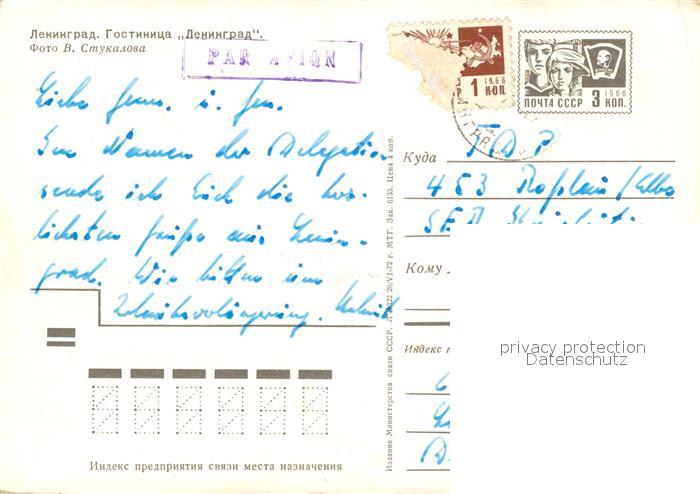 Ленинград. Гостиница „Ленинград".
Фото В. Стукалова
PAR AVION
1966
1 КОП
ПОЧТА СССР 3 КОП.
1966
Liebe Genn. u. Gen.
Im Namen der Delegation
sende ich Euch die herz-
lichsten Grüße aus Lenin-
grad. Wir bitten um
Куда ГДР
453 Roßlau/Elbe
SED
Кому
Индекс п
privacy protection
Datenschutz
Издание Министерства связи СССР. 20/VI-72 г. МТГ. Зак. 6133. Цена 4 коп.
Индекс предприятия связи места назначения